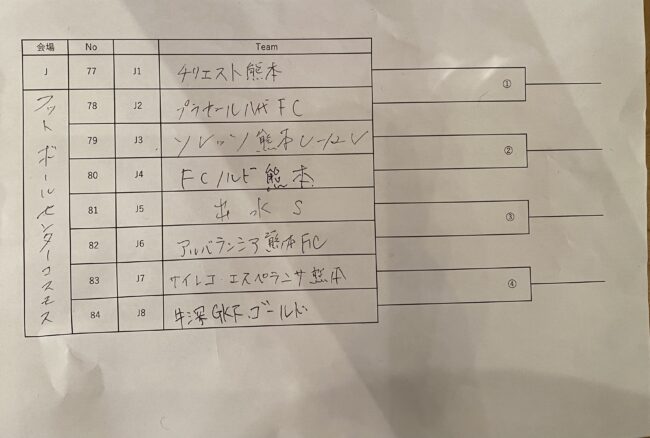 会場 No Team
J 77 J1 チリエスト熊本
78 J2 プラセール八代FC
79 J3 ソレッソ熊本
80 J4 FCノルビ熊本
81 J5 出水S
82 J6 アルバランシア熊本FC
83 J7 サイレコ・エスペランサ熊本
84 J8 牛深GKFゴールド
フットボールセンターコスモス
①
②
③
④